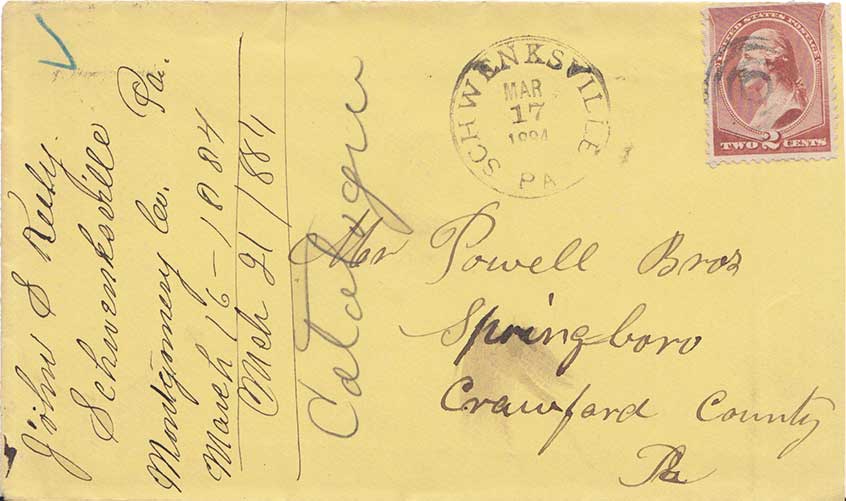 John S
Schwenksville Pa.
Montgomery Co.
March 16 - 1884
Mch 21/884
Catalogue
SCHWENKSVILLE
MAR
17
1884
PA
UNITED STATES POSTAGE
TWO 2 CENTS
Mr Powell Bros
Springboro
Crawford County
Pa